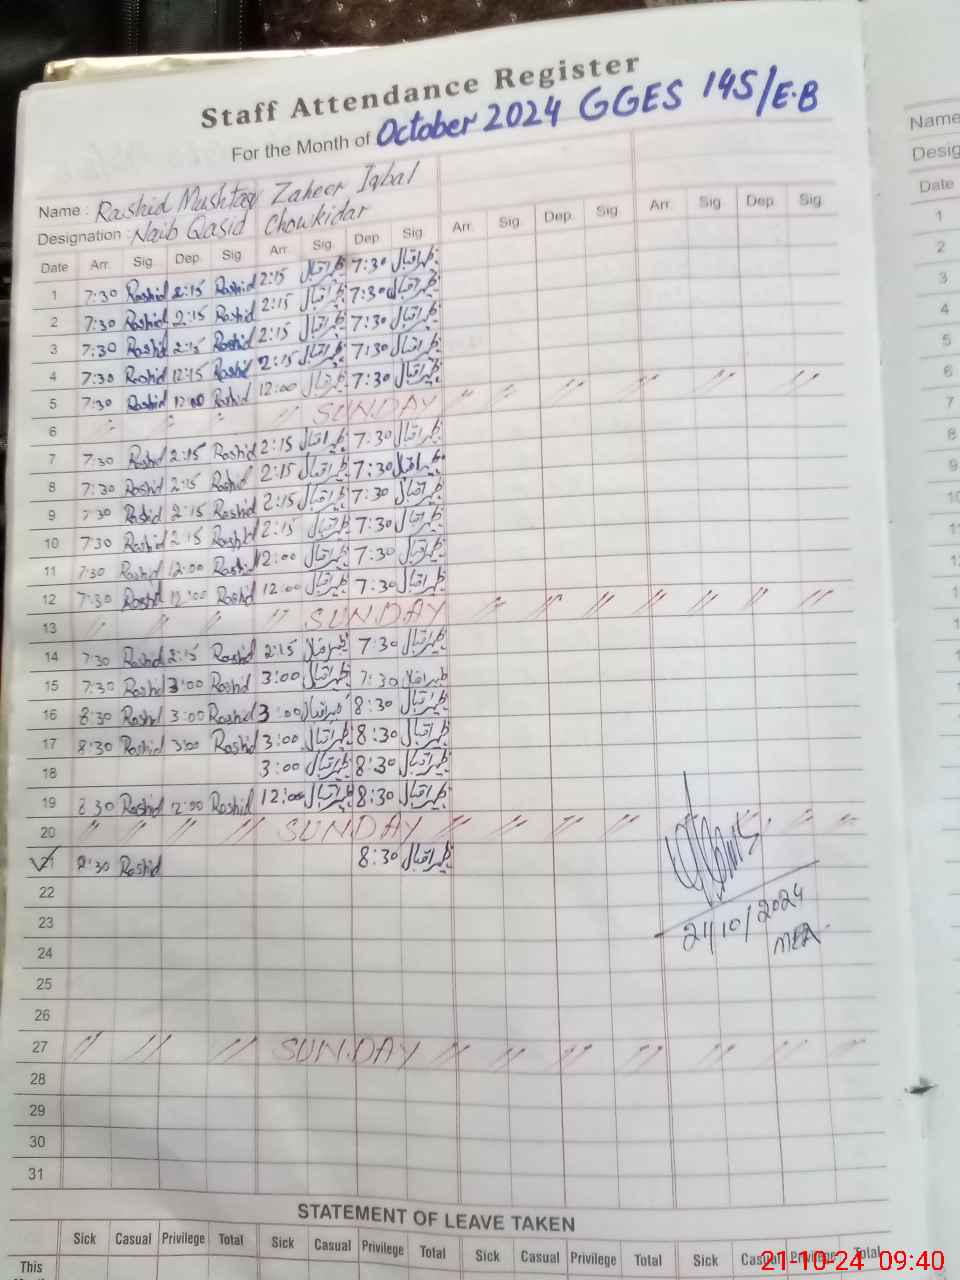 Staff Attendance Register
For the Month of October 2024 GGES 145/E.B
Name : Rashid Mushtaq Zaheer Iqbal
Designation : Naib Qasid Chowkidar
Date Arr. Sig Dep. Sig Arr. Sig Dep Sig Arr. Sig Dep. Sig Arr. Sig Dep. Sig
1 7:30 Rashid 2:15 Rashid 2:15 ظہیر اقبال 7:30 ظہیر اقبال
2 7:30 Rashid 2:15 Rashid 2:15 ظہیر اقبال 7:30 ظہیر اقبال
3 7:30 Rashid 2:15 Rashid 2:15 ظہیر اقبال 7:30 ظہیر اقبال
4 7:30 Rashid 12:15 Rashid 2:15 ظہیر اقبال 7:30 ظہیر اقبال
5 7:30 Rashid 12:00 Rashid 12:00 ظہیر اقبال 7:30 ظہیر اقبال
6 SUNDAY
7 7:30 Rashid 2:15 Rashid 2:15 ظہیر اقبال 7:30 ظہیر اقبال
8 7:30 Rashid 2:15 Rashid 2:15 ظہیر اقبال 7:30 ظہیر اقبال
9 7:30 Rashid 2:15 Rashid 2:15 ظہیر اقبال 7:30 ظہیر اقبال
10 7:30 Rashid 2:15 Rashid 2:15 ظہیر اقبال 7:30 ظہیر اقبال
11 7:30 Rashid 12:00 Rashid 12:00 ظہیر اقبال 7:30 ظہیر اقبال
12 7:30 Rashid 12:00 Rashid 12:00 ظہیر اقبال 7:30 ظہیر اقبال
13 SUNDAY
14 7:30 Rashid 2:15 Rashid 2:15 ظہیر اقبال 7:30 ظہیر اقبال
15 7:30 Rashid 3:00 Rashid 3:00 ظہیر اقبال 7:30 ظہیر اقبال
16 8:30 Rashid 3:00 Rashid 3:00 ظہیر اقبال 8:30 ظہیر اقبال
17 8:30 Rashid 3:00 Rashid 3:00 ظہیر اقبال 8:30 ظہیر اقبال
18 3:00 ظہیر اقبال 8:30 ظہیر اقبال
19 8:30 Rashid 12:00 Rashid 12:00 ظہیر اقبال 8:30 ظہیر اقبال
20 SUNDAY
21 8:30 Rashid 8:30 ظہیر اقبال
22
23
21/10/2024
24
MEA
25
26
27 SUNDAY
28
29
30
31
STATEMENT OF LEAVE TAKEN
Sick Casual Privilege Total Sick Casual Privilege Total Sick Casual Privilege Total Sick Casual Privilege Total
This
21-10-24 09:40
Name
Desig
Date
1
2
3
4
5
6
7
8
9
10